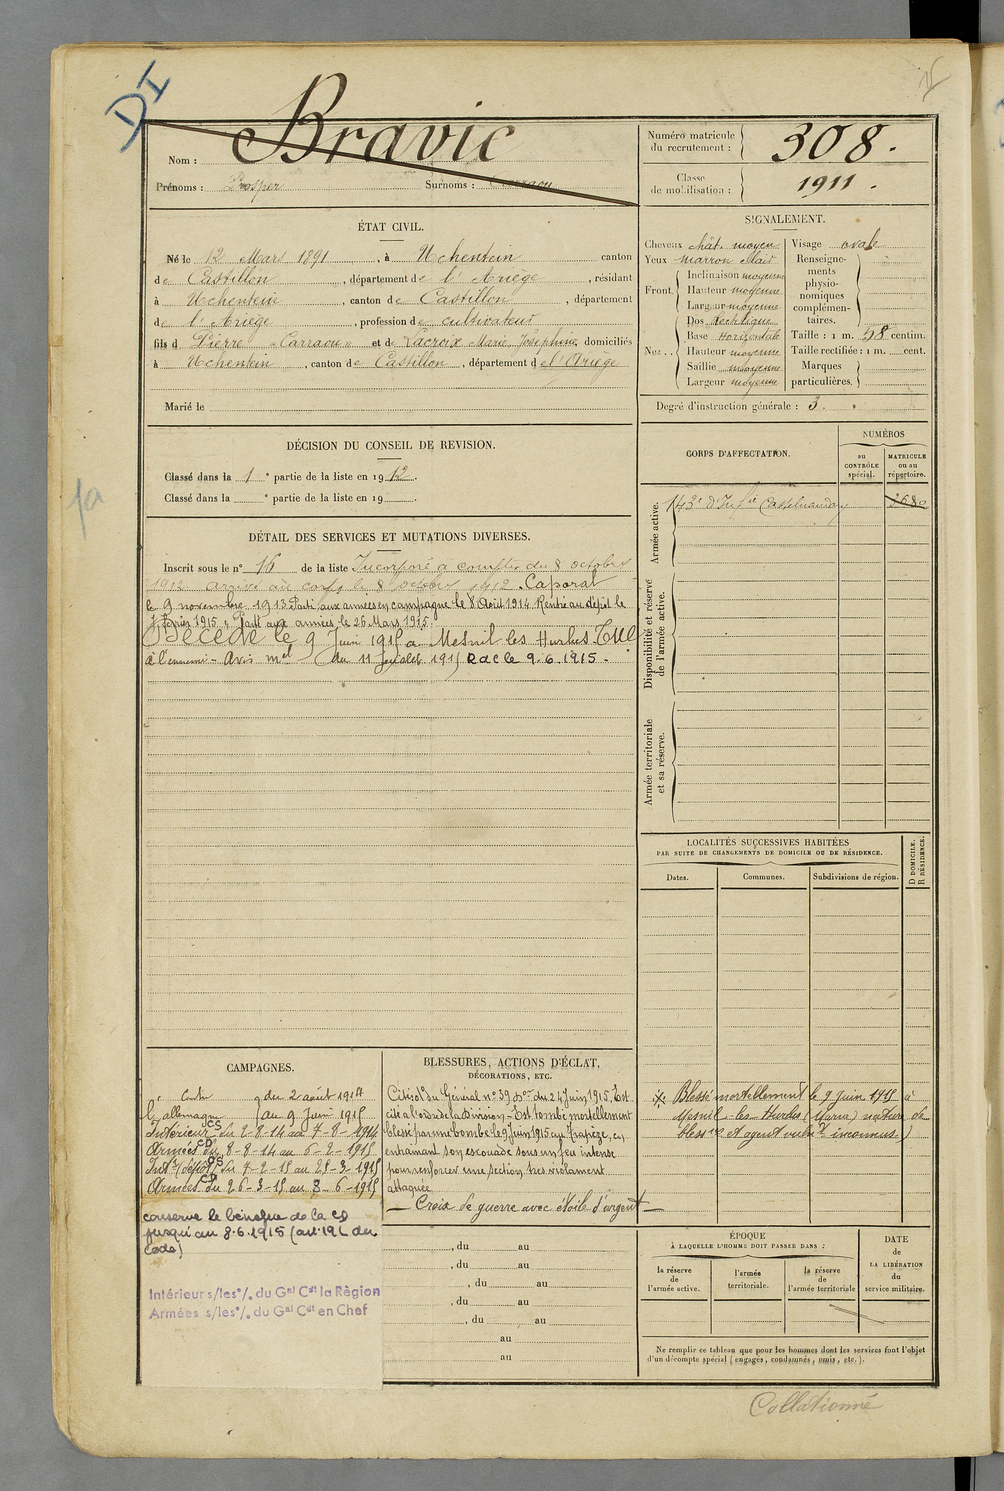 DI
Nom : Bravic
Prénoms : Prosper Surnoms : Carraou
Numéro matricule du recrutement : 308.
Classe de mobilisation : 1911.
ÉTAT CIVIL.
Né le 12 Mars 1891, à Uchentein canton
de Castillon, département de l'Ariège, résidant
à Uchentein, canton de Castillon, département
de l'Ariège, profession de cultivateur
fils d Pierre "Carraou" et de Lacroix Marie Joséphine, domiciliés
à Uchentein, canton de Castillon, département d el'Ariège
Marié le
SIGNALEMENT.
Cheveux chât. moyen
Yeux marron clair
Front. Inclinaison moyenne
Hauteur moyenne
Largeur moyenne
Nez . . Dos Rectiligne
Base Horizontale
Hauteur moyenne
Saillie moyenne
Largeur moyenne
Visage ovale
Renseignements physionomiques complémentaires.
Taille : 1 m. 58 centim.
Taille rectifiée : 1 m. cent.
Marques particulières.
Degré d'instruction générale : 3.
DÉCISION DU CONSEIL DE REVISION.
Classé dans la 1e partie de la liste en 1912.
Classé dans la e partie de la liste en 19 .
CORPS D'AFFECTATION.
NUMÉROS
au CONTRÔLE spécial.
MATRICULE ou au répertoire.
Armée active.
143e d'Infie Castelnaudary 2680
Disponibilité et réserve de l'armée active.
Armée territoriale et sa réserve.
DÉTAIL DES SERVICES ET MUTATIONS DIVERSES.
Inscrit sous le n° 16 de la liste Incorporé à compter du 8 octobre
1912 arrivé au corps le 8 octobre 1912. Caporal
le 9 novembre 1913 Parti aux armées en campagne le 8 Août 1914 Rentré au dépôt le
7 février 1915. Parti aux armées le 26 Mars 1915.
Décédé le 9 Juin 1915 à Mesnil les Hurlus Tué
à l'ennemi - Avis mel du 11 Juillet 1915 Rac le 9.6.1915.
LOCALITÉS SUCCESSIVES HABITÉES
PAR SUITE DE CHANGEMENTS DE DOMICILE OU DE RÉSIDENCE.
Dates. Communes. Subdivisions de région. D DOMICILE. R RÉSIDENCE.
Blessé mortellement le 9 juin 1915 à
Mesnil-les Hurlus (Marne) nature de
blessre et agent vulnt inconnus)
CAMPAGNES.
Contre du 2 août 1914
l'allemagne au 9 Juin 1915
Intérieur CS du 2-8-14 au 7-8-1914
Armées CD du 8-8-14 au 6-2-1915
Intr (dépôt) CS du 7-2-15 au 25-3-1915
Armées CD du 26-3-15 au 8-6-1915
conserve le bénéfice de la CD
jusqu'au 8.6.1915 (art 19 L du
Code)
Intérieur s/les°/. du Gal Cdt la Région
Armées s/les°/. du Gal Cdt en Chef
BLESSURES, ACTIONS D'ÉCLAT,
DÉCORATIONS, ETC.
Cité ot du Général n° 39 du 24 Juin 1915. Est
cité à l'ordre de la Division - Est tombé mortellement
blessé par une bombe le 9 Juin 1915 au Trapèze, en
entraînant son escouade sous un feu intense
pour renforcer une section très violament
attaquée
— Croix de guerre avec étoile d'argent —
, du au
, du au
, du au
, du au
, du au
au
au
ÉPOQUE
À LAQUELLE L'HOMME DOIT PASSER DANS :
la réserve de l'armée active.
l'armée territoriale.
la réserve de l'armée territoriale
DATE de LA LIBÉRATION du service militaire.
Ne remplir ce tableau que pour les hommes dont les services font l'objet
d'un décompte spécial (engagés, condamnés, omis, etc.).
Collationné